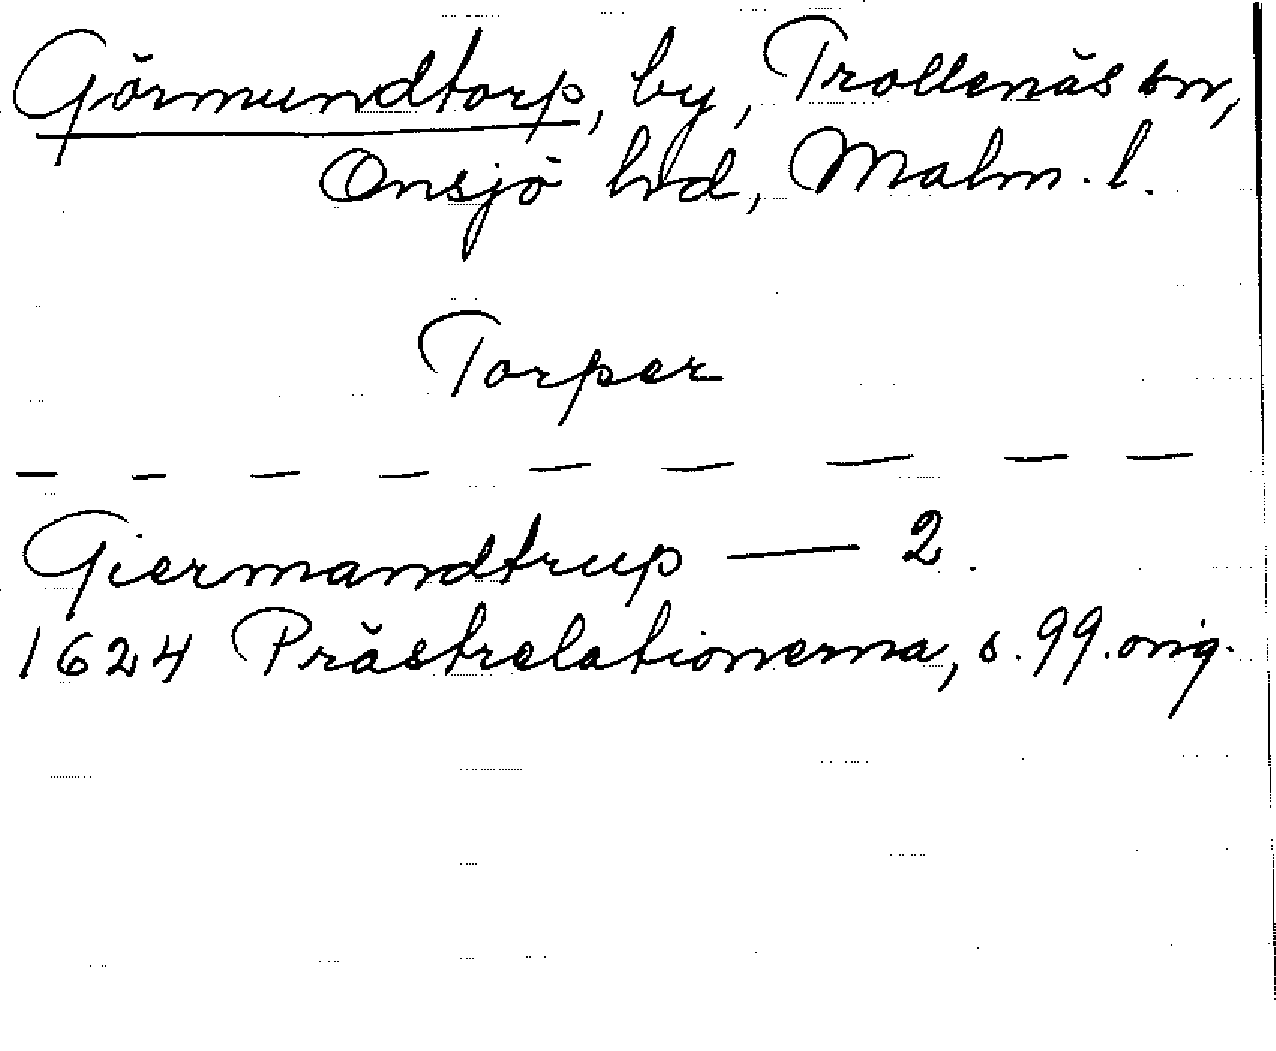 Görmundtorp, by, Trollenäs sn,
Onsjö hd, Malm. l.
Torper
— — — — — — — — —
Giermandtrup — 2.
1624 Prästrelationerna, s. 99. orig.